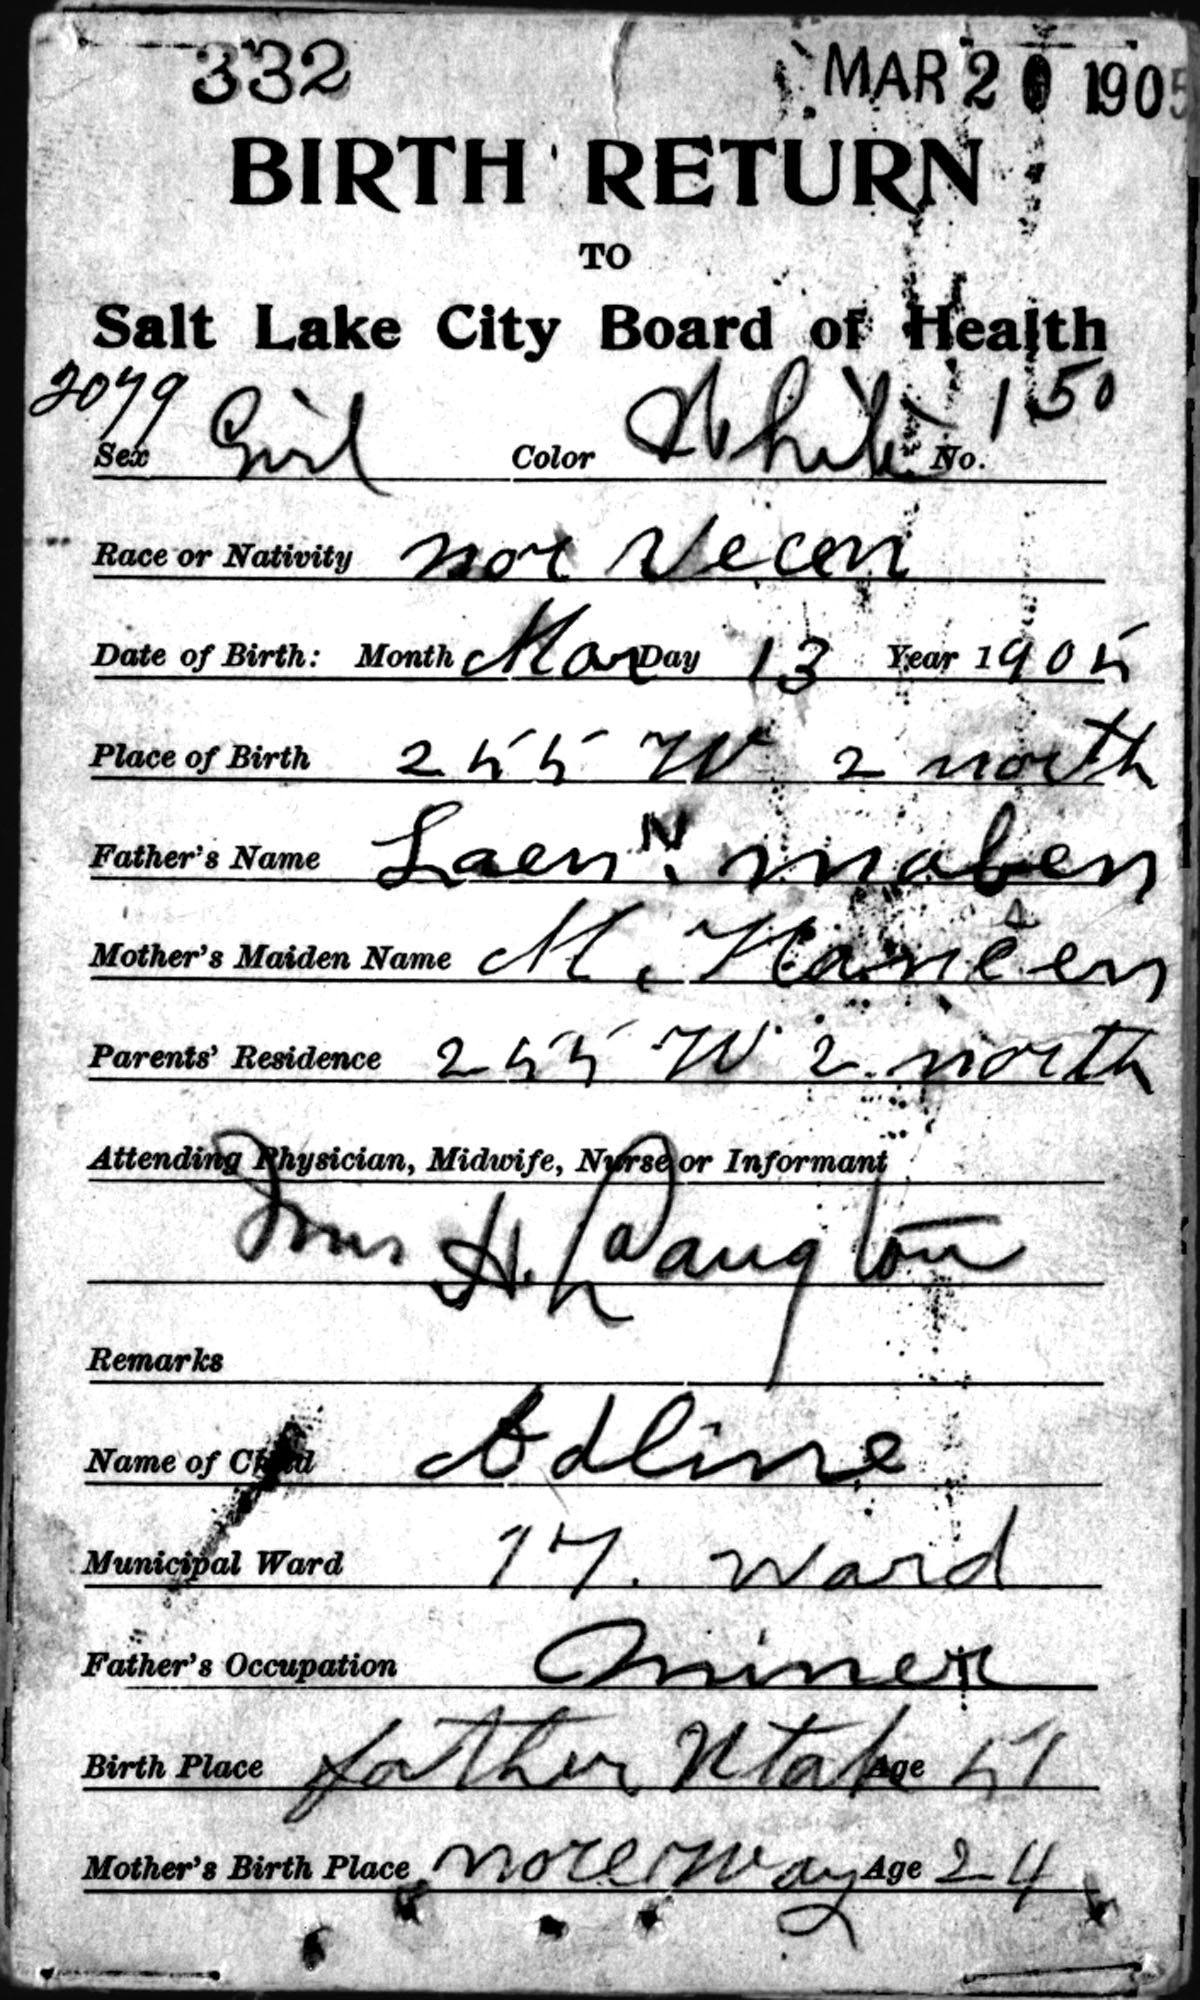 332 MAR 20 1905
BIRTH RETURN
TO
Salt Lake City Board of Health
2079 150
Sex Girl Color White No.
Race or Nativity nor Vecen
Date of Birth: Month Mar Day 13 Year 1905
Place of Birth 255 W 2 north
Father's Name Laen N. maben
Mother's Maiden Name M. Haneen
Parents' Residence 255 W 2. north
Attending Physician, Midwife, Nurse or Informant
Mrs H.
Remarks
Name of Child Adline
Municipal Ward 17. Ward
Father's Occupation miner
Birth Place father Utah Age 51
Mother's Birth Place noreway Age 24